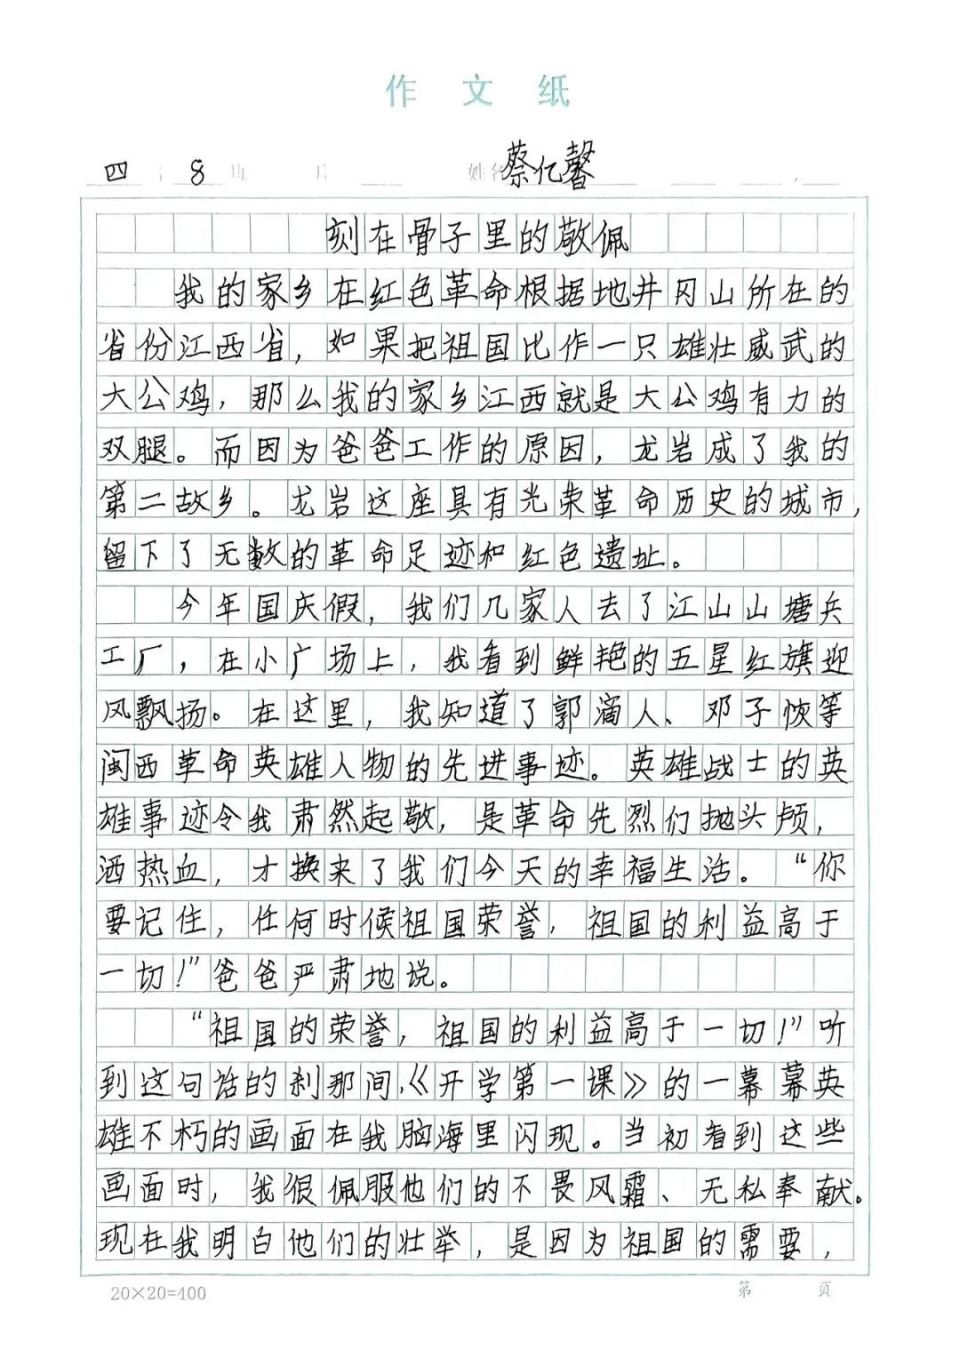 作 文 纸
四 8 班 姓名 蔡亿馨
刻在骨子里的敬佩
我的家乡在红色革命根据地井冈山所在的
省份江西省，如果把祖国比作一只雄壮威武的
大公鸡，那么我的家乡江西就是大公鸡有力的
双腿。而因为爸爸工作的原因，龙岩成了我的
第二故乡。龙岩这座具有光荣革命历史的城市，
留下了无数的革命足迹和红色遗址。
今年国庆假，我们几家人去了江山山塘兵
工厂，在小广场上，我看到鲜艳的五星红旗迎
风飘扬。在这里，我知道了郭滴人、邓子恢等
闽西革命英雄人物的先进事迹。英雄战士的英
雄事迹令我肃然起敬，是革命先烈们抛头颅，
洒热血，才换来了我们今天的幸福生活。“你
要记住，任何时候祖国荣誉，祖国的利益高于
一切！”爸爸严肃地说。
“祖国的荣誉，祖国的利益高于一切！”听
到这句话的刹那间，《开学第一课》的一幕幕英
雄不朽的画面在我脑海里闪现。当初看到这些
画面时，我很佩服他们的不畏风霜、无私奉献。
现在我明白他们的壮举，是因为祖国的需要，
20×20=400 第 页